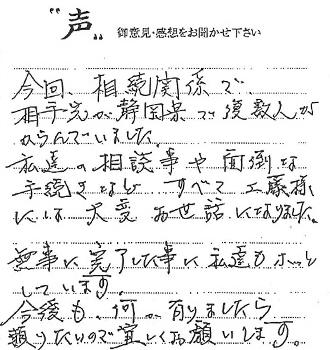 "声" 御意見・感想をお聞かせ下さい
今回、相続関係で、
相手先が静岡県で複数人が
からんでいました。
私達の相談事や面倒な
手続きなど すべて 工藤様
には 大変 お世話になりました。
無事に完了した事に私達もホッと
しています。
今後も、何か有りましたら
頼りたいので宜しくお願いします。